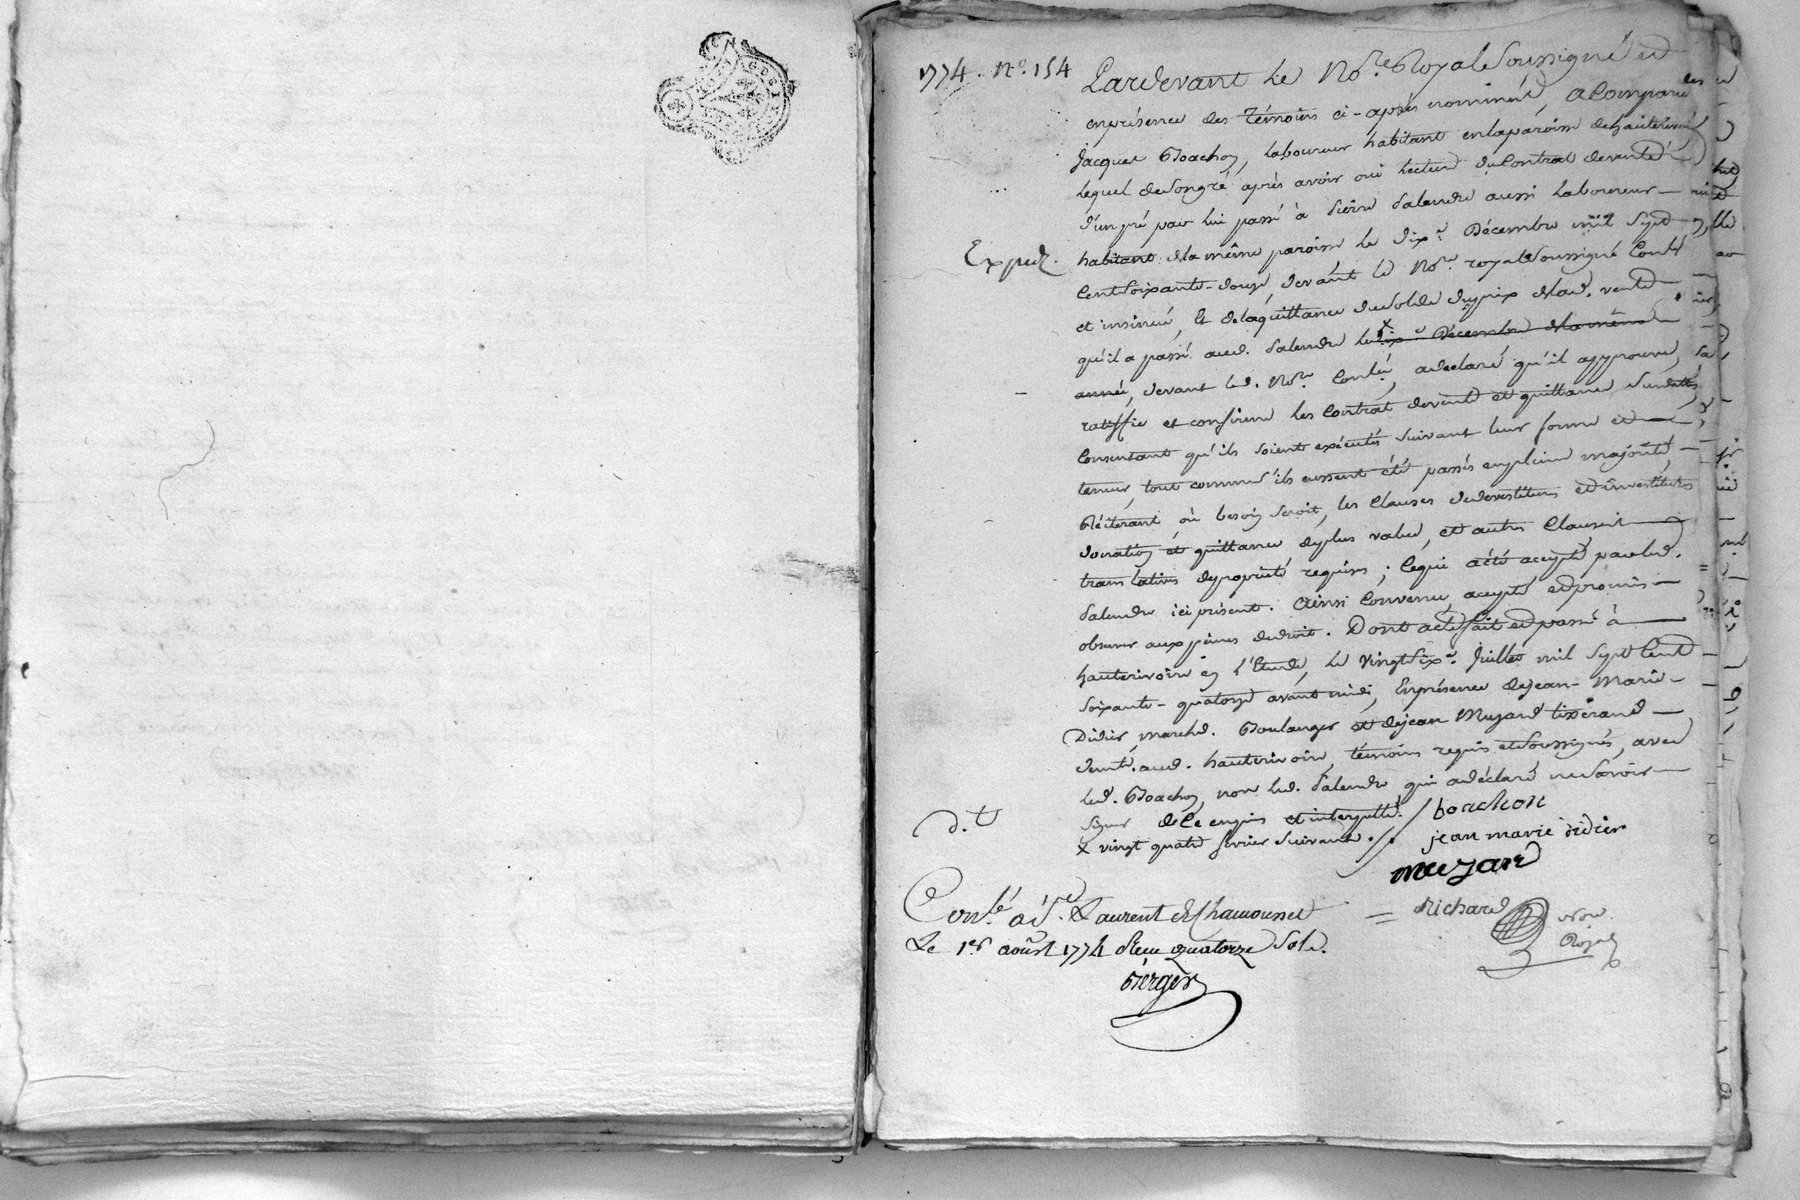 1774. N.o 154
Pardevant Le No.re Royal Soussigné et
en présence des Témoins ci-après nommés, a Comparu
Jacques Poachon, Laboureur habitant en la paroisse de hauterivoire
Lequel de Son gré après avoir oui Lecture du Contrat de vente
d'un pré par lui passé à pierre Salendre aussi Laboureur
habitant de la même paroisse le dix.e Décembre mil Sept
Cent Soixante-douze, devant le No.re royal Soussigné Conlé
et insinué, Et de la quittance du Solde du prix de lad. vente
Exped.
qu'il a passé aud. Salendre le dix.e Décembre de la même x
année, devant led. No.re Conlé, a déclaré qu'il approuve,
ratiffie et confirme les Contrat de vente et quittance Susdattés,
Consentant qu'ils soient exécutés Suivant leur forme et
teneur, tout comme s'ils eussent été passés en pleine majorité,
Réiterant où besoin seroit, les Clauses de devestiture et investiture
donation et quittance de plus value, et autres Clauses
translatives de proprieté requises; Ce qui a été accepté par led.
Salendre ici présent. Ainsi Convenu, accepté et promis
observer aux peines de droit. Dont acte fait et passé à
hauterivoire en l'Etude, Le vingt Six.e Juillet mil Sept Cent
Soixante-quatorze avant midi, En présence de jean-Marie
Didier, march.d Boulanger et de jean Muzard tisserand
dem.t aud. hauterivoire, témoins requis et Soussignés, avec
led. Poachon, non led. Salendre qui a déclaré ne Savoir
Signer de Ce enquis et interpellé.
x vingt quatre fevrier Suivant.
D.t
poachon
jean marie didier
muzard
Richard
No.re
Royal
Con.lé à S.t Laurent de Chamousset
Le 1.er août 1774 Reçu quatorze Sols.
Berger